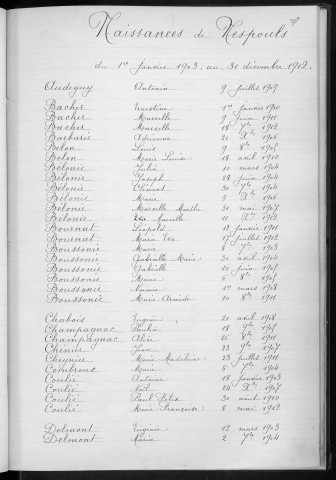 Naissances de Nespouls
du 1er janvier 1903 au 31 décembre 1912.
Audeguy Antonin 9 juillet 1909
Bacher Ernestine 1er janvier 1910
Bacher Marcelle 9 juin 1911
Bacher Marcelle 18 1912
Barbarie Adrienne 21 Xbre
Belon Louis 9 8bre 1905
Belon Marie Louise 18 avril 1910
Belonie Julia 10 mars 1904
Belonie Joseph 28 juin 1904
Belonie Clément 30 Xbre 1904
Belonie Marie 5 Xbre
Belonie Marcelle Marthe 31 mai 1907
Belonie Marcelle 11 Xbre 1912
Bournat Léopold 12 janvier 1911
Bournat Maria Eva 17 juillet 1912
Boussonie Marie 7bre 1903
Boussonie Gabrielle Marie 30 avril
Boussonie Gabrielle 10 juin 1905
Boussonie Maria
Boussonie 1er mars 1908
Boussonie Marie 10 8bre 1911
Chabois Eugène 21 avril 1908
Champagnac Paulin 18 9bre 1905
Champagnac Alice 25 8bre 1911
Chenier Jean 23 8bre 1907
Cheynier Marie Madeleine 23 juillet 1911
Combrous Marie 5 7bre 1904
Coulié Antoine 18 janvier 1903
Coulié Noël 24 Xbre 1907
Coulié Paul Félix 30 août 1910
Coulié Marie Françoise 8 mai 1912
Delmont Eugène 12 mars 1903
Delmont Maria 2 7bre 1904